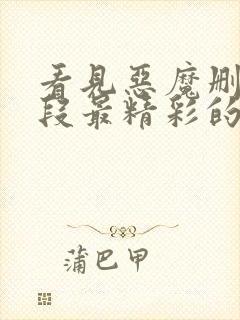 看見惡魔刪
段最精彩的
蒲巴甲